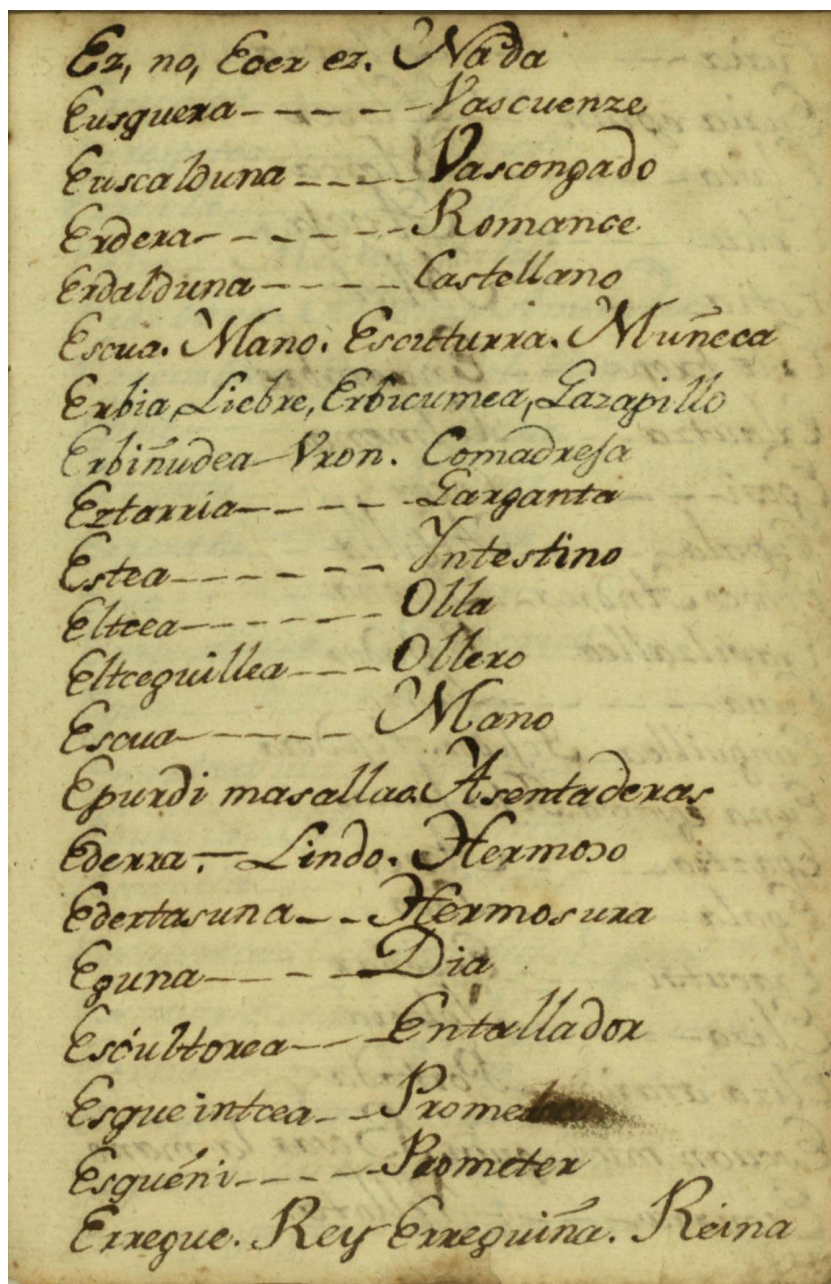 Ez, no, Ecer ez. Nada
Eusquera - - - - - Vascuenze
Euscalduna - - - - Vascongado
Erdera - - - - - - Romance
Erdalduna - - - - Castellano
Escua. Mano. Escuturra. Muñeca
Erbia, Liebre, Erbicumea, Gazapillo
Erbiñudea - Vron. Comadresa
Eztarria - - - - - Garganta
Estea - - - - - - Intestino
Eltcea - - - - - - Olla
Eltceguillea - - - Ollero
Escua - - - - - Mano
Epurdi masallac. Asentaderas
Ederra. - Lindo. Hermoso
Edertasuna - - Hermosura
Eguna - - - - Dia
Escultorea - - - Entallador
Esqueintcea - -
Esquéni - - - - Prometer
Erregue. Rey Erreguiña. Reina